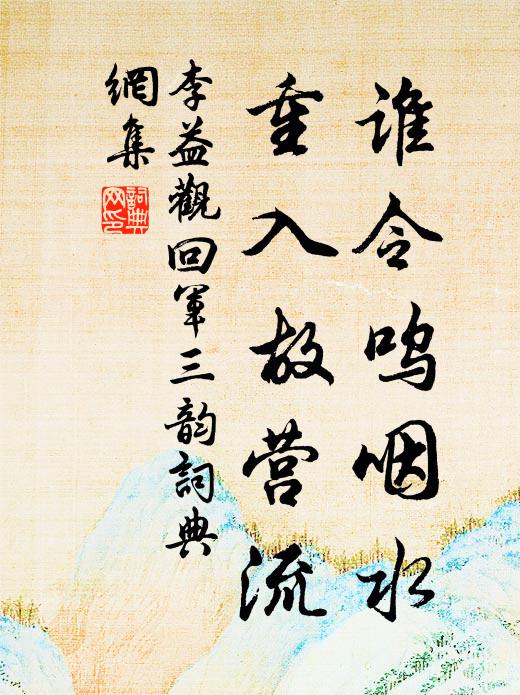 谁令鸣咽水
重入故营流
李益觀回軍三韵詞典
網集
詞典
网印